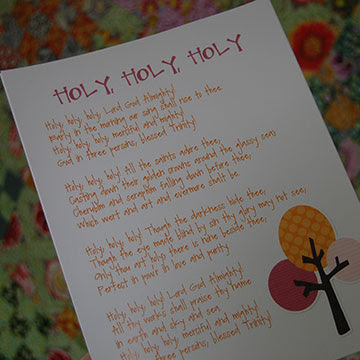 HOLY, HOLY, HOLY
Holy, holy, holy! Lord God Almighty!
Early in the morning our song shall rise to thee.
Holy, holy, holy! merciful and mighty,
God in three persons, blessed Trinity!
Holy, holy, holy! All the saints adore thee,
Casting down their golden crowns around the glassy sea;
Cherubim and seraphim falling down before thee,
Which wert and art and evermore shalt be.
Holy, holy, holy! Though the darkness hide thee,
Though the eye made blind by sin thy glory may not see,
Only thou art holy; there is none beside thee,
Perfect in power in love and purity.
Holy, holy, holy! Lord God Almighty!
All thy works shall praise thy name
in earth and sky and sea.
Holy, holy, holy! merciful and mighty!
in three persons, blessed Trinity